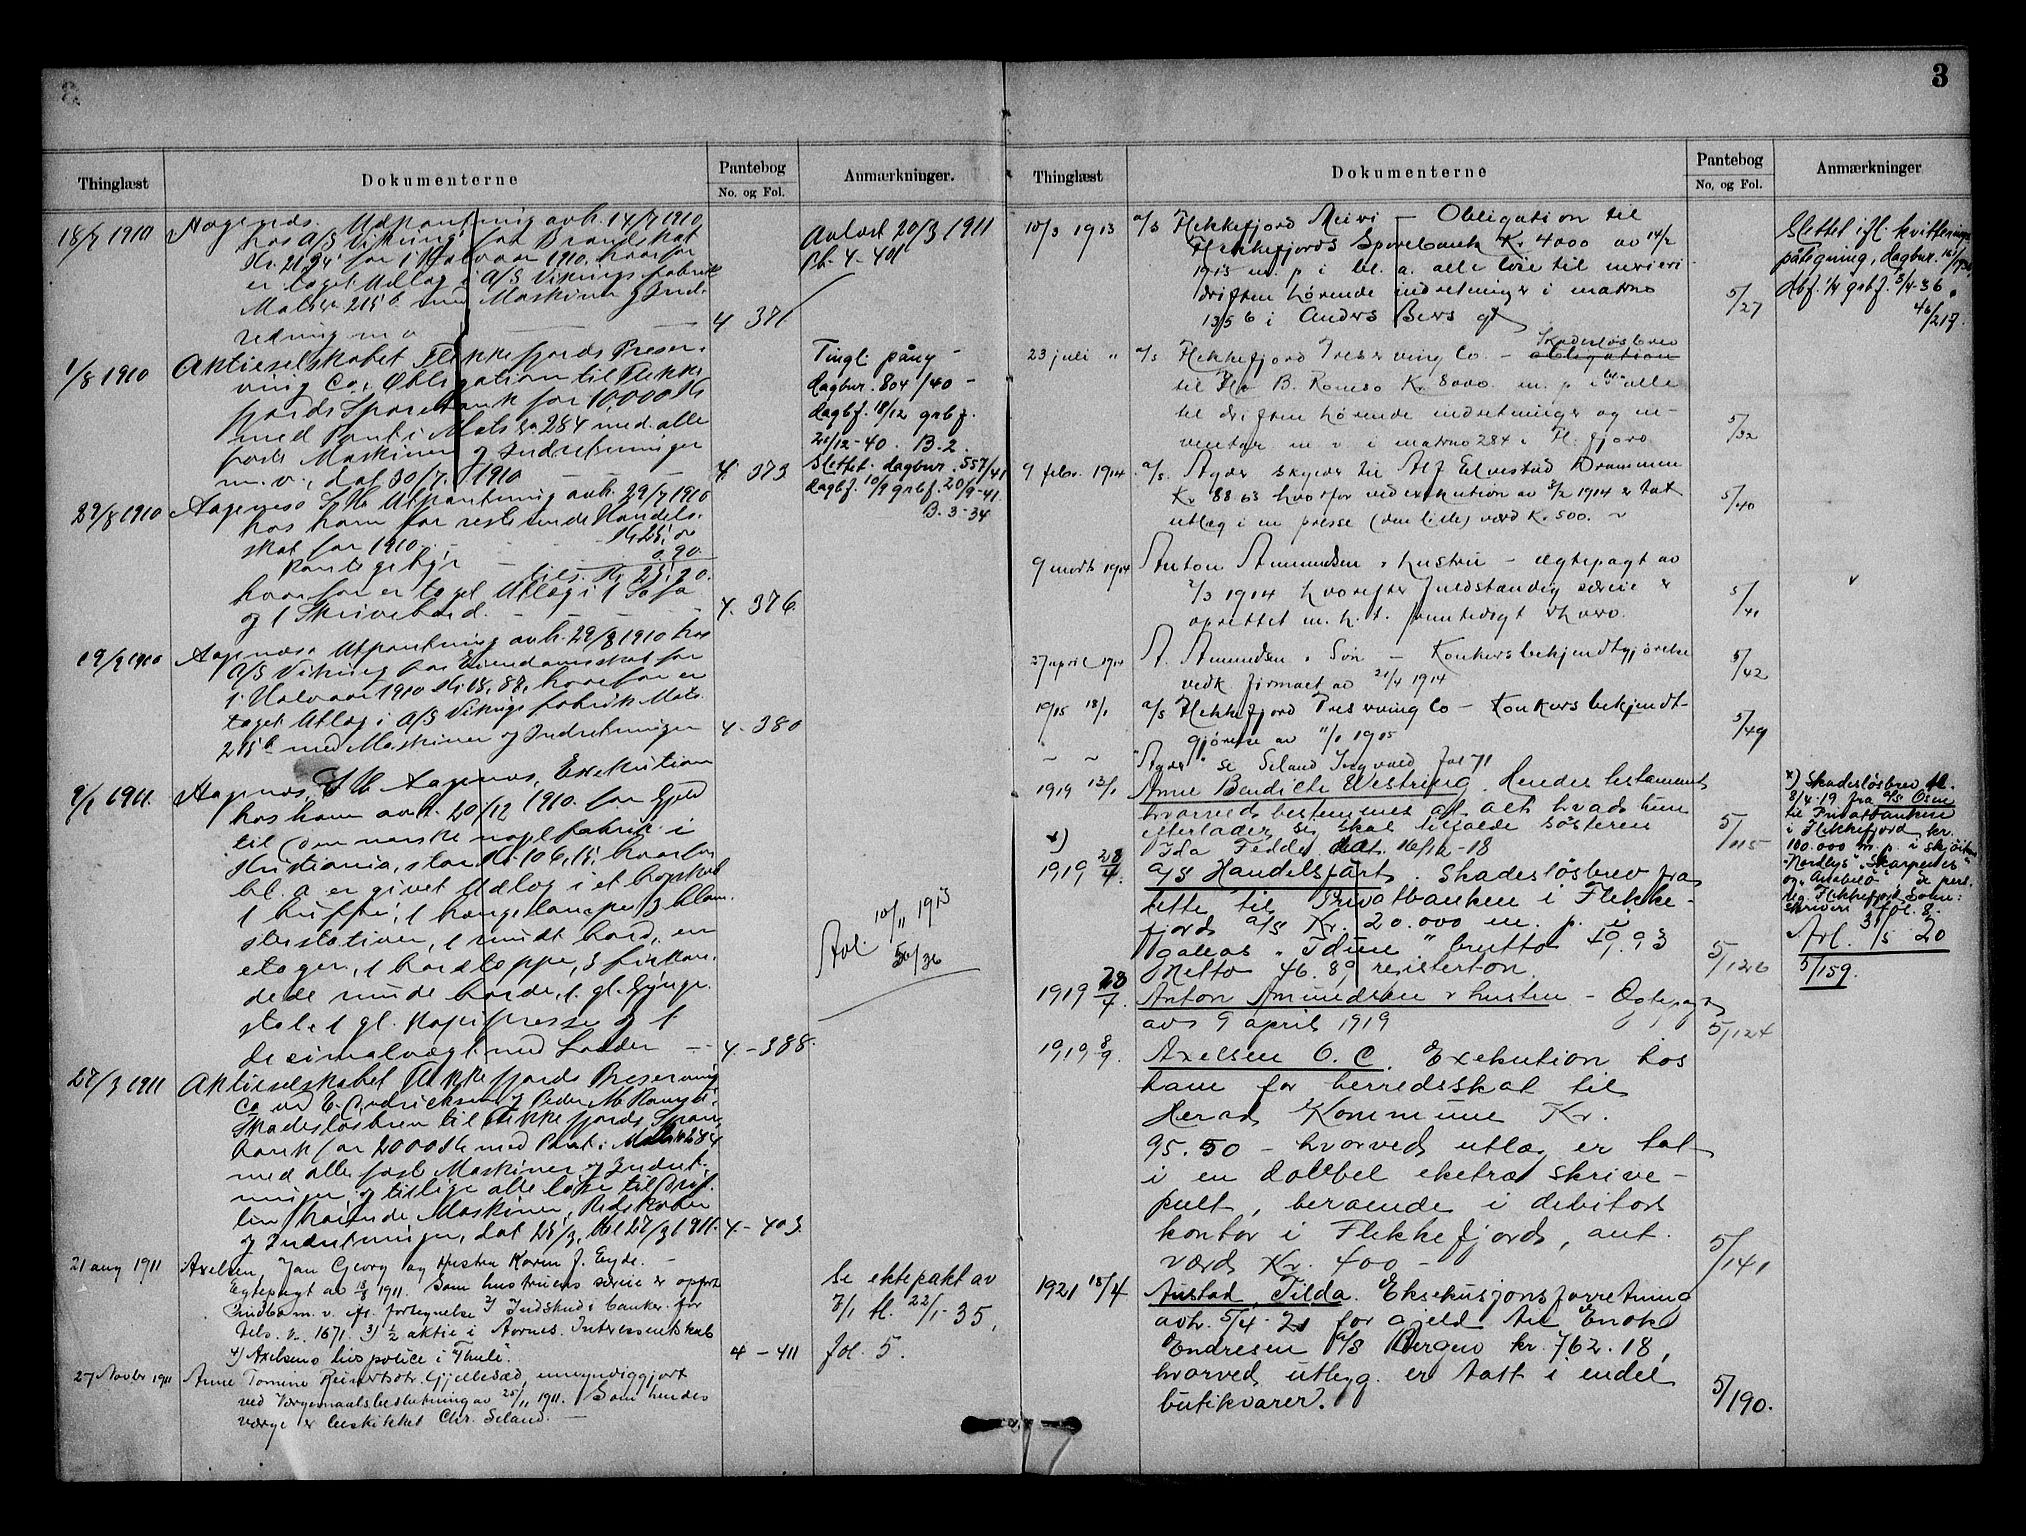 3
Thinglæst
Dokumenterne
Pantebog
No. og Fol.
Anmærkninger.
18/7 1910
Aagenæs. Udpantning avh. 14/7 1910
hos A/S Viking for Brandskat
for 1 Halvaar 1910, hvorfor
er taget Udlæg i A/S Vikings Fabrik
med Maskiner og Ind-
redning m v
4 371
Avlæst 20/3 1911
Pb. 4-401
1/8 1910
Aktieselskabet Flekkefjords Preser-
ving Co, Obligation til Flekke
fjords Sparebank for 10,000 Kr
med Pant i Mats. No 284 med alle
faste Maskiner og Indretninger
m. v., dat 30/7. 1910
4. 373
Tingl. pány -
dagbnr. 804/40 -
dagbf. 18/12 grbf.
21/12-40. B. 2.
Slettet. dagbnr. 557/41
dagbf. 10/9 grbf. 20/9-41.
B. 3-34
29/8 1910
Aagenæs S. M. Utpantning avh. 29/7 1910
hos ham for resterende Handels-
skat for 1910
Pantegebyr 0.90
tils. Kr 25,90.
hvorfor er taget Utlæg i 1 Sofa
og 1 Skrivebord.
4. 376
19/9 1910
Aagenæs. Utpantning avh. 29/8 1910 hos
A/S Viking for Eiendomsskat for
1. Halvaar 1910 hvorfor er
taget Utlæg i A/S Vikings Fabrik Mats.
med Maskiner og Indretninger
4-380
9/1 1911.
Aagenæs, S M Aagenæs, Exekution
hos ham avh. 20/12 1910. for Gjeld
til Den norske papfabrik i
Kristiania, stor Kr. 106,15, hvorfor
bl. a er givet Udlæg i et
1 buffé, 1 hængelampe, 3 blom-
sterstativer, 1 rundt bord, en
etager, 1 bordteppe, 3 firkan-
dede runde borde, 1. gl. Gynge-
stol. 1 gl. Kopipresse og 1.
desimalvægt med Lodder
4-388.
Avl. 10/11 1915
5/36
27/3 1911
Aktieselskabet Flekkefjords Preserving
Co ved E. Andricksen og Peder M.
Skadesløsbrev til Flekkefjords Spare
bank for 2000 Kr med Pant i Mats No 284
med alle faste Maskiner og Indret-
ninger, og tillige alle løse til Drif-
ten hørende Maskiner, Redskaber
og Indretninger, dat 25/3, tl 27/3 1911.
4-403.
21 aug 1911
Axelsen, Jan Georg og Hustru Karen J. Eyde. -
Egtepagt av 18/8 1911. Som hustruens særeie er opført
Indbo m. v. ifl. fortegnelse 2) Indskud i banker. for
tils. kr. 1671. 3) 1/2 aktie i Aornes. Interessentskab
4) Axelsens livspolice i "Thule".
4-411
Se ektepakt av
3/1 tl. 22/1-35,
fol. 5.
27 Novbr 1911
Anne Tomine Reinertsdtr. Gjellesæd, umyndiggjort
ved Vergemaalsbeslutning av 25/11 1911. Som hendes
værge er beskikket Chr. Seland. -
3
Thinglæst
Dokumenterne
Pantebog
No. og Fol.
Anmærkninger
10/3 1913
a/s Flekkefjord Meieri - Obligation til
Flekkefjords Sparebank Kr 4000 av 14/2
1913 m. p i bl. a. alle løse til meieri
driften hørende indretninger i matrno
135 b i Anders Beers gt
5/27
Slettet ifl. kvitterings
påtegning, dagbnr.
dbf. grbf. 3/4-36.
46/217.
23 juli "
a/s Flekkefjord Preserving Co. - Skadesløsbrev
obligation
til Hr B. Romsø Kr. 8000. m. p i bl. a. alle
til driften hørende indretninger og in-
ventar m v. i matrno 284 i Fl. fjord
5/32
9 febr. 1914
a/s. Agder skyldner til Alf Elvestad Drammen
Kr 88.63 hvorfor ved exekution av 3/2 1914 er tat
utlæg i en presse (den lille) værd Kr. 500. -
5/40
9 marts 1914
Anton Amundsen & hustru - ægtepagt av
2/3 1914 hvorefter fuldstændig særeie er
oprettet m. h. t. fremtidigt erhverv.
5/41
27 april 1914
A. Amundsen & Søn - Konkursbekjendtgjørelse
vedk firmaet av 21/4 1914
5/42
1915 18/1
a/s Flekkefjord Preserving Co - Konkursbekjendt-
gjørelse av 11/1 1915
5/49
"Agder" se Seland Ingvald fol 71
1919 13/1
Anne Bendicte Westring. Hendes testament
hvorved bestemmes at alt hvad hun
efterlader sig skal tilfalde søsteren
Ida Fedde, dat. 16/12-18
5/115
x)
1919 28/4.
a/s Handelsfart. Skadesløsbrev fra
dette til Privatbanken i Flekke-
fjord a/s Kr. 20.000 m. p. i
galeas "Idun" brutto 49,93
netto 46.89 registerton
5/126
x) Skadesløsbrev tl.
8/4-19 fra a/s Osen
til Privatbanken
i Flekkefjord kr.
100.000 m. p. i skjöiten
"Nordlys", "Skarpenes"
og "Anabelö", se pers.
reg. Flekkefjord Soren-
skriveri fol. 8.
Avl. 31/5 20
5/159.
1919 28/7.
Anton Amundsen & hustru - Ægtepagt
avs 9 april 1919
5/124
1919 8/9.
Axelsen O. C. Exekution hos
ham for herredsskat til
Herad Kommune Kr.
95.50 - hvorved utlæg er tat
i en dobbel eketræ skrive-
pult, beroende i debitors
kontor i Flekkefjord, ant.
værd Kr. 400 -
5/141
1921 18/4
Austad, Tilda. Eksekusjonsforretning
avh. 5/4-21 for gjeld til Enok
Endresen a/s Bergen kr. 762.18,
hvorved utlegg er tatt i endel
butikvarer.
5/190.